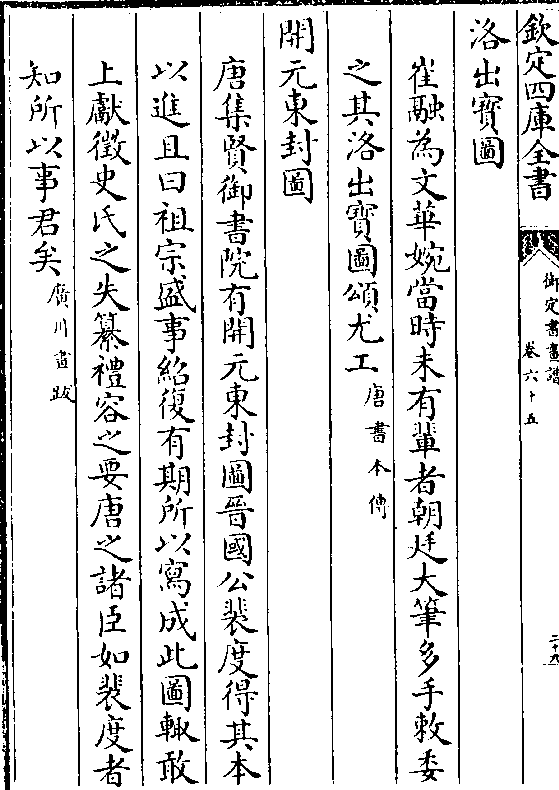 欽定四庫全書
御定書畫譜
卷六十五
二十九
洛出寶圖
崔融為文華婉當時未有輩者朝廷大筆多手敕委
之其洛出寶圖頌尤工唐書本傳
開元東封圖
唐集賢御書院有開元東封圖晉國公裴度得其本
以進且曰祖宗盛事紹復有期所以寫成此圖輙敢
上獻徵史氏之失纂禮容之要唐之諸臣如裴度者
知所以事君矣廣川畫跋